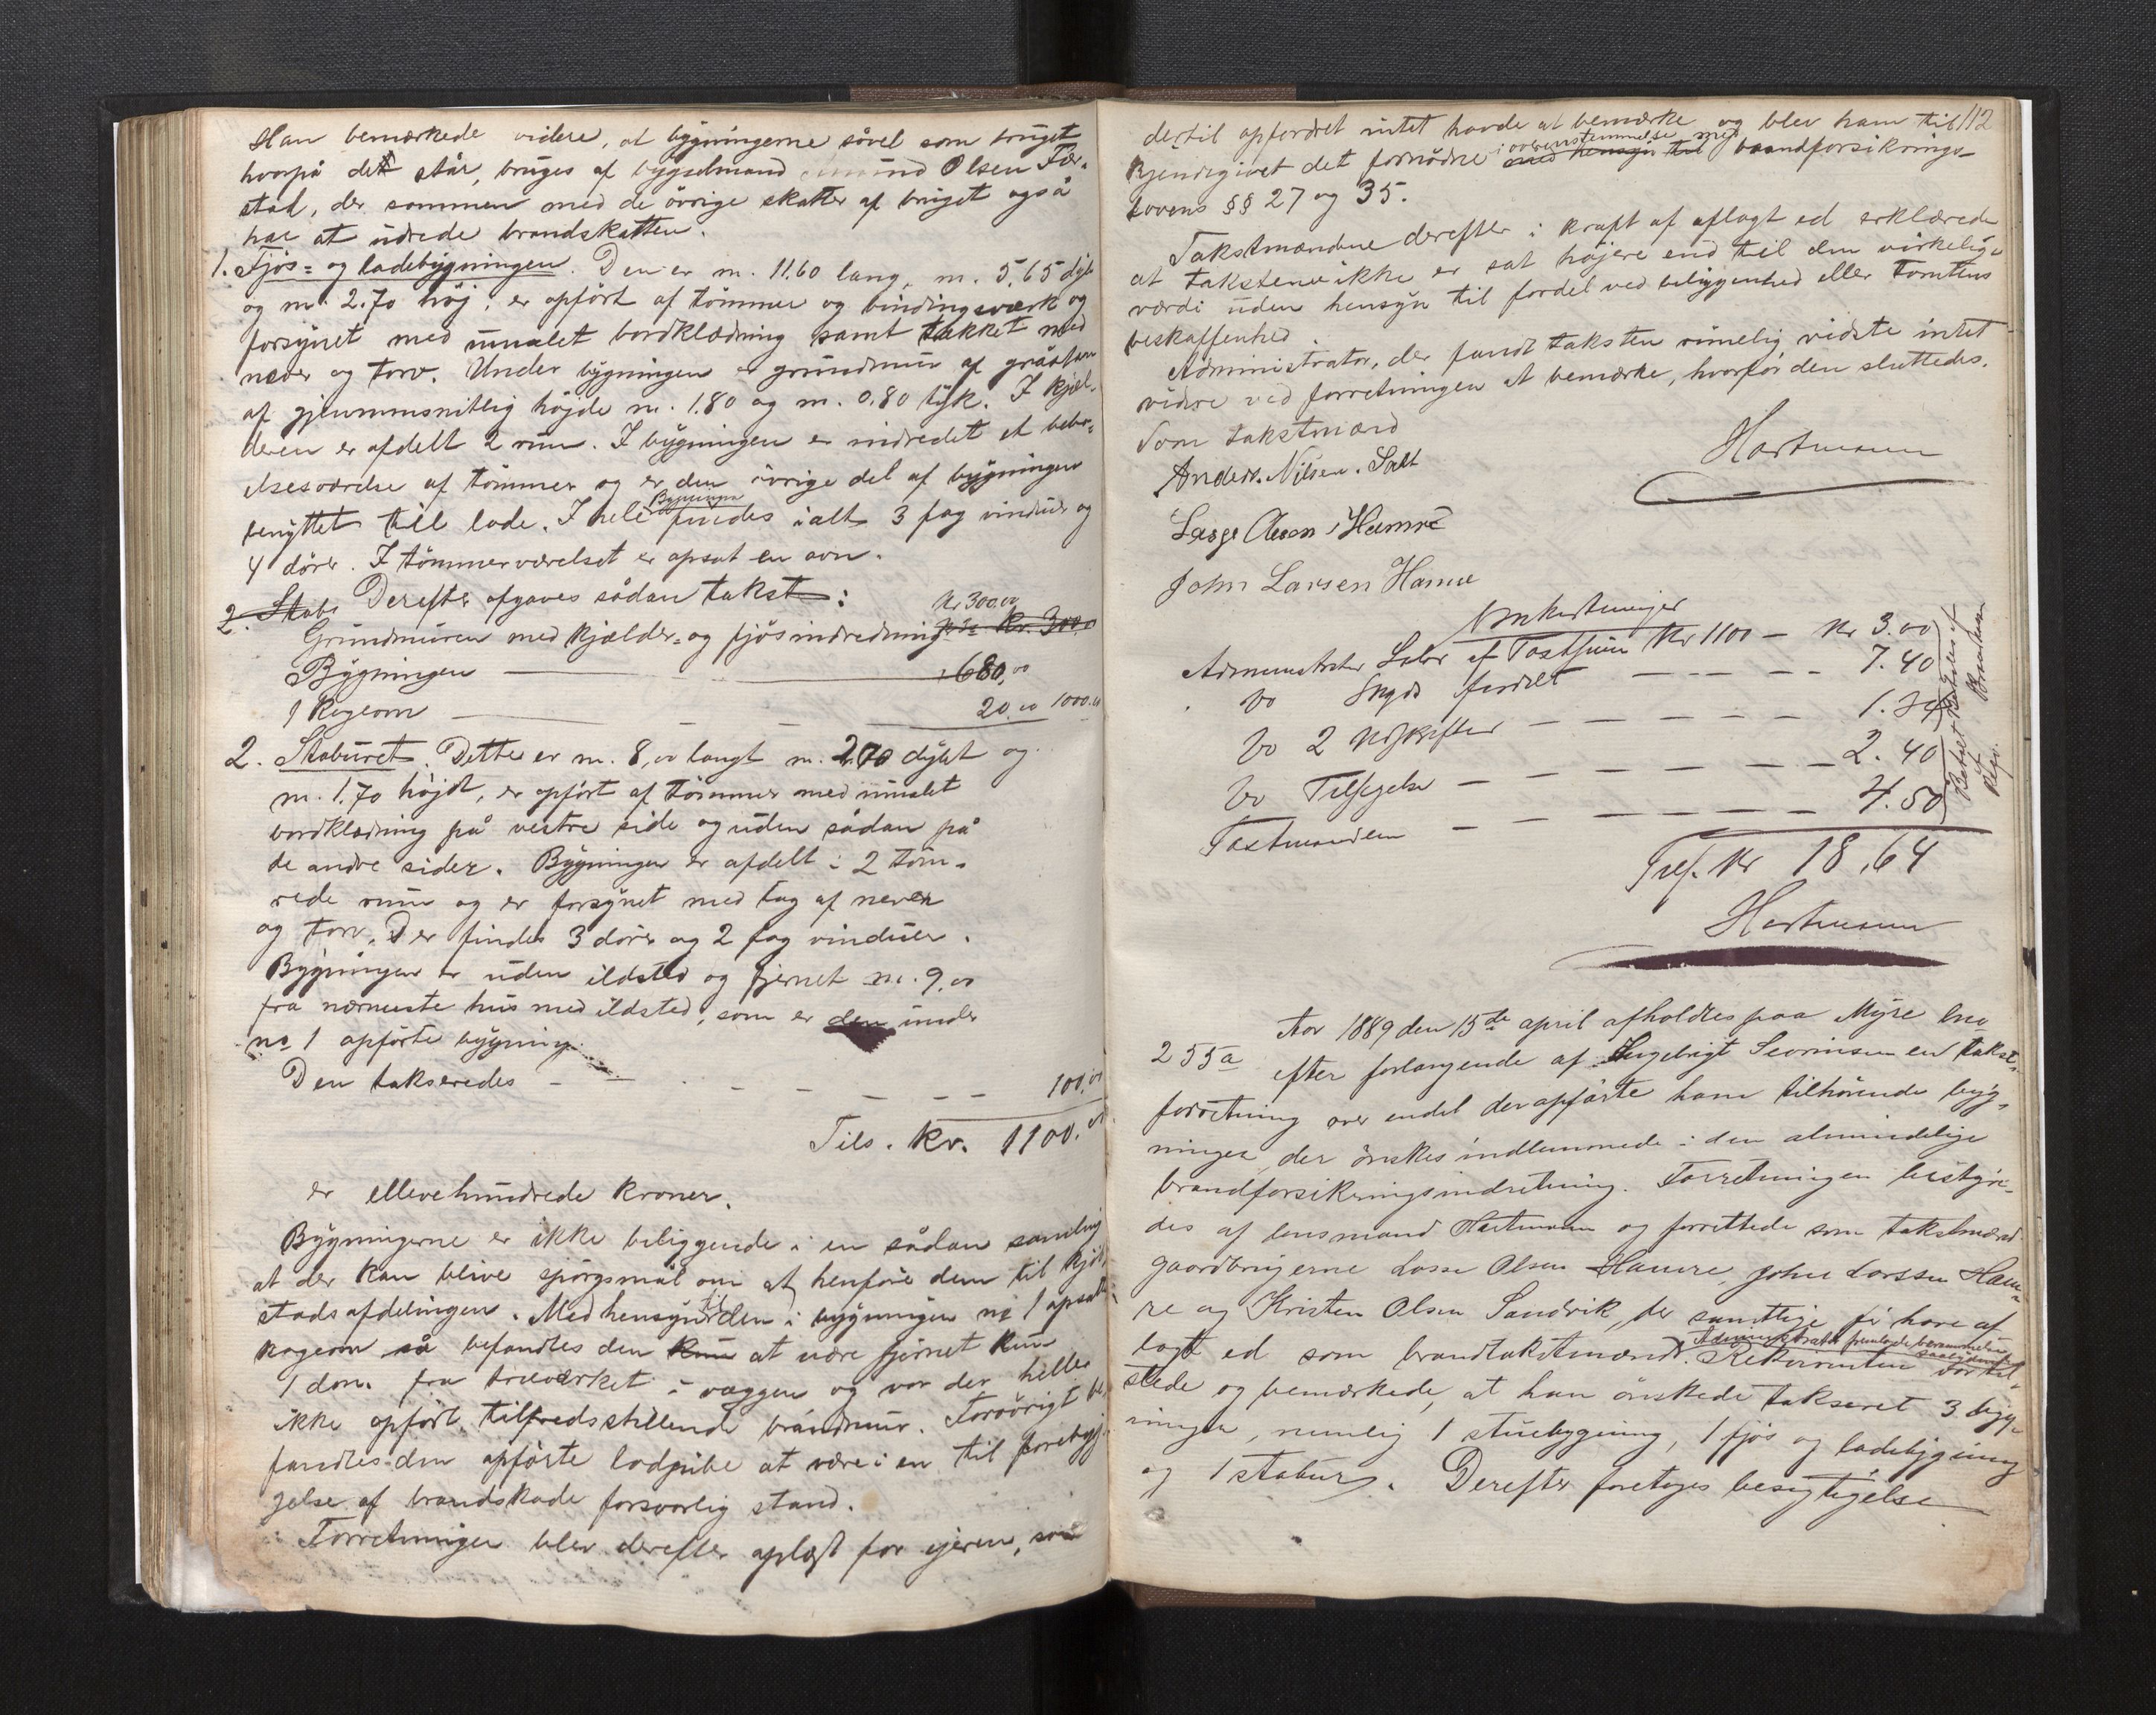 Han bemærkede videre, at bygningerne såvel som bruget
hvorpå det står, bruges af bygselmand Olsen Fær-
stad, der sammen med de övrige skatter af bruget også
har at udrede brandskatten.
1. Fjös- og ladebygningen. Den er m. 11.60 lang, m. 5,65 dyb
og m. 2.70 höj, er opfört af tömmer og bindingsværk og
forsynet med umalet bordklædning samt tækket med
never og torv. Under bygningen er grundmur af gråsten
af gjennemsnitlig höjde m. 1.80 og m. 0.80 tyk. I kjæl-
deren er afdelt 2 rum. I bygningen er indredet et bebo-
elsesværelse af tömmer og er den övrige del af bygningen
benyttet till lade. I hele Bygningen findes ialt 3 fag vinduer og
4 dörer. I tömmerværelset er opsat en ovn.
2. Stabu Derefter afgaves sådan takst:
Grundmuren med kjælder- og fjösindredning Kr 300.00 Kr. 300.00
Bygningen — 680,00
1 Kogeovn — 20.00 1000.00
2. Staburet. Dette er m. 8,00 langt m. 2.70 dybt og
m. 1.70 höjt, er opfört af tömmer med umalet
bordklædning på vestre side og uden sådan på
de andre sider. Bygningen er afdelt i 2 töm-
rede rum og er forsynet med tag af never
og torv. Der findes 3 dörer og 2 fag vinduer.
Bygningen er uden ildsted og fjernet m. 9.00
fra nærmeste hus med ildsted, som er den under
no 1 opförte bygning.
Den takseredes — 100.00
Tils. Kr. 1100.00
er ellevehundrede kroner.
Bygningerne er ikke beliggende i en sådan samling
at der kan blive spörgsmål om at henföre dem til kjöb-
stadsafdelingen. Med hensyn til den i bygningen no 1 opsatte
kogeovn så befandtes den kun at være fjernet kun
1 dm. fra træværket i væggen og var der heller
ikke opfört tilfredsstillende brandmur. Forövrigt be-
fandtes den opförte lodpibe at være i en til forebyg-
gelse af brandskade forsvarlig stand.
Forretningen blev derefter oplæst for ejeren, som
112
dertil opfordret intet havde at bemærke og blev ham til
Kjendegivet det fornödne i overensstemmelse med med hensyn til brandforsikrings-
lovens §§ 27 og 35.
Takstmændene derefter i kraft af aflagt ed erklærede
at taksten ikke er sat höjere end til den virkelige
værdi uden hensyn til fordel ved beliggenhed eller tomtens
beskaffenhed.
Administrator, der fandt taksten rimelig vidste intet
videre ved forretningen at bemærke, hvorfor den sluttedes.
Som takstmænd
Hartmann
Anders. Nilsen. Salt
Lasse Olsen Hamre
John Larsen Hamre
Omkostninger
Administrator Salær af Taxtsum Kr 1100 — Kr 3.00
Do Skyds — 7.40
Do 2 Udskrifter — 1.34
Do Tilsigelse — 2.40
Taxtmændene — 4.50
Tils. Kr 18,64
Hartmann
Aar 1889 den 15de april afholdtes paa Myre lno
255a efter forlangende af Engebrigt Severinsen en takst-
forretning over endel der opförte ham tilhörende byg-
ninger, der önskes indlemmede i den almindelige
brandforsikringsindretning. Forretningen bestyre-
des af lensmand Hartmann og forrettede som takstmænd
gaardbrugerne Lasse Olsen Hamre, John Larssen Ham-
re og Kristen Olsen Sandvik, der samtlige för have af
lagt ed som brandtakstmænd. Administrator fremlagde berammelse saalydende Rekvirenten var til-
stede og bemærkede, at han önskede takseret 3 byg-
ninger, nemlig 1 stuebygning, 1 fjös og ladebygning
og 1 stabur. Derefter foretoges besigtigelse